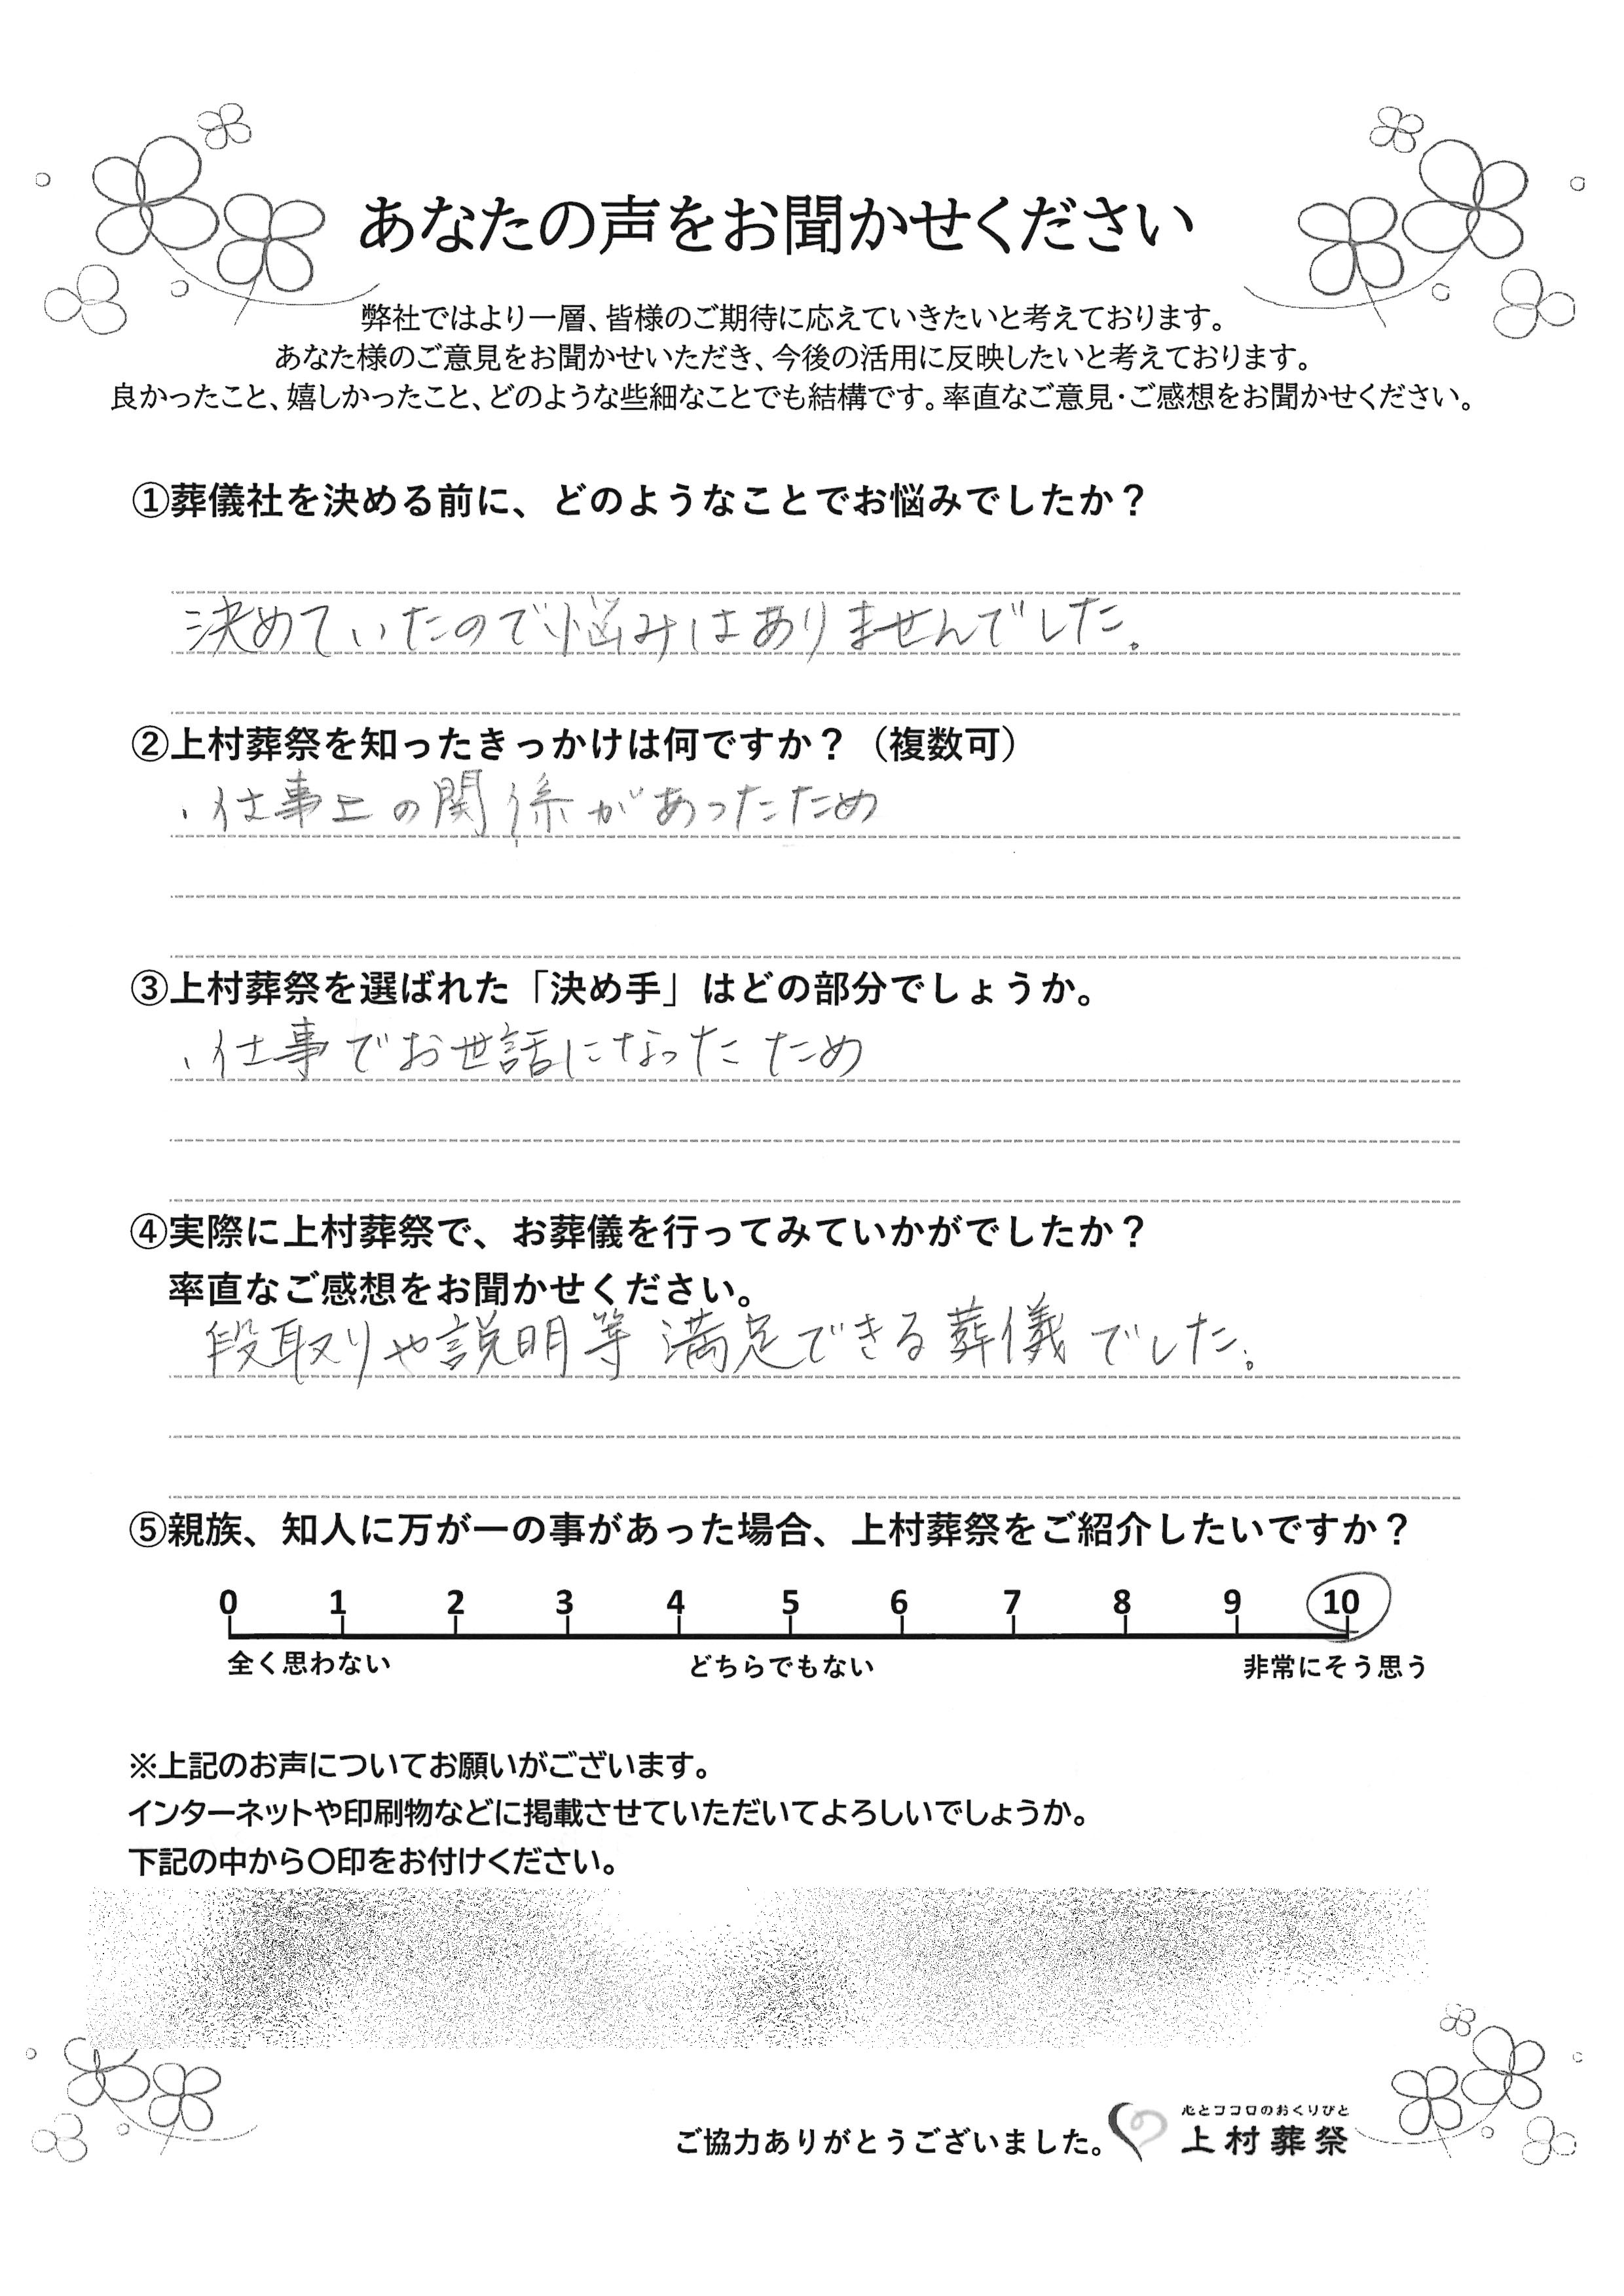 あなたの声をお聞かせください
弊社ではより一層、皆様のご期待に応えていきたいと考えております。
あなた様のご意見をお聞かせいただき、今後の活用に反映したいと考えております。
良かったこと、嬉しかったこと、どのような些細なことでも結構です。率直なご意見・ご感想をお聞かせください。
①葬儀社を決める前に、どのようなことでお悩みでしたか？
決めていたので悩みはありませんでした。
②上村葬祭を知ったきっかけは何ですか？（複数可）
・仕事上の関係があったため
③上村葬祭を選ばれた「決め手」はどの部分でしょうか。
・仕事でお世話になったため
④実際に上村葬祭で、お葬儀を行ってみていかがでしたか？
率直なご感想をお聞かせください。
段取りや説明等 満足できる葬儀でした。
⑤親族、知人に万が一の事があった場合、上村葬祭をご紹介したいですか？
0 1 2 3 4 5 6 7 8 9 10
全く思わない どちらでもない 非常にそう思う
※上記のお声についてお願いがございます。
インターネットや印刷物などに掲載させていただいてよろしいでしょうか。
下記の中から〇印をお付けください。
心とココロのおくりびと
ご協力ありがとうございました。 上村葬祭